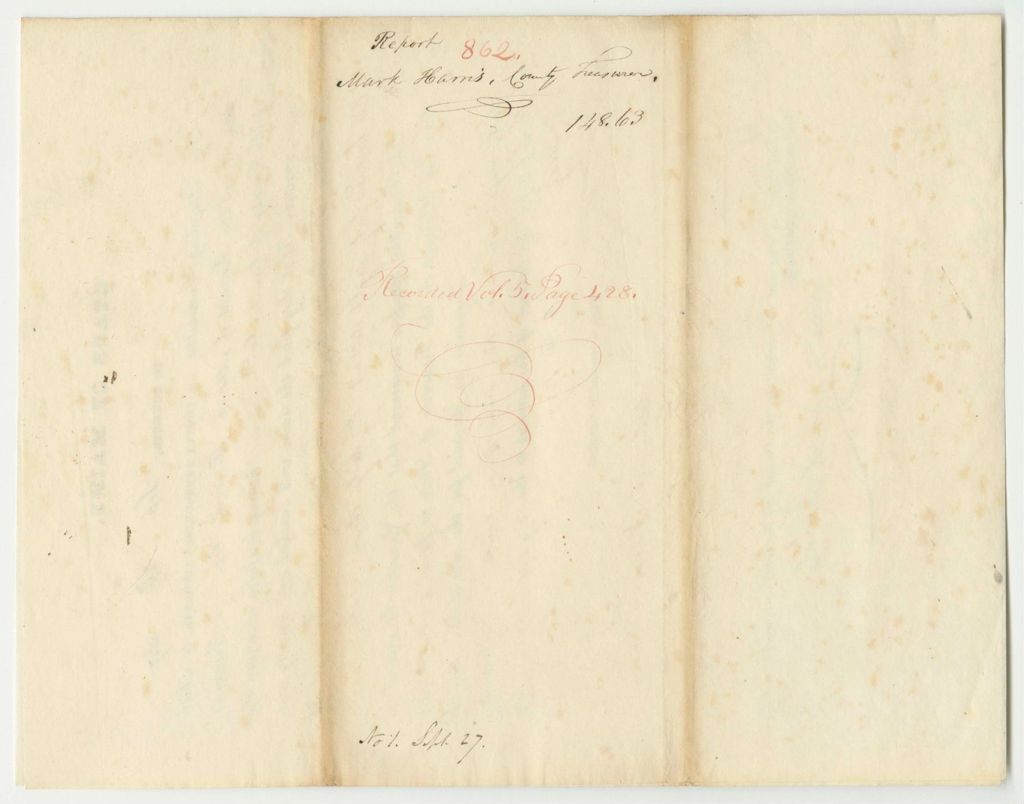 Report 862.
Mark Harris, County Treasurer.
148.63
Recorded Vol. 5. Page 428.
No 1. Sept. 27.